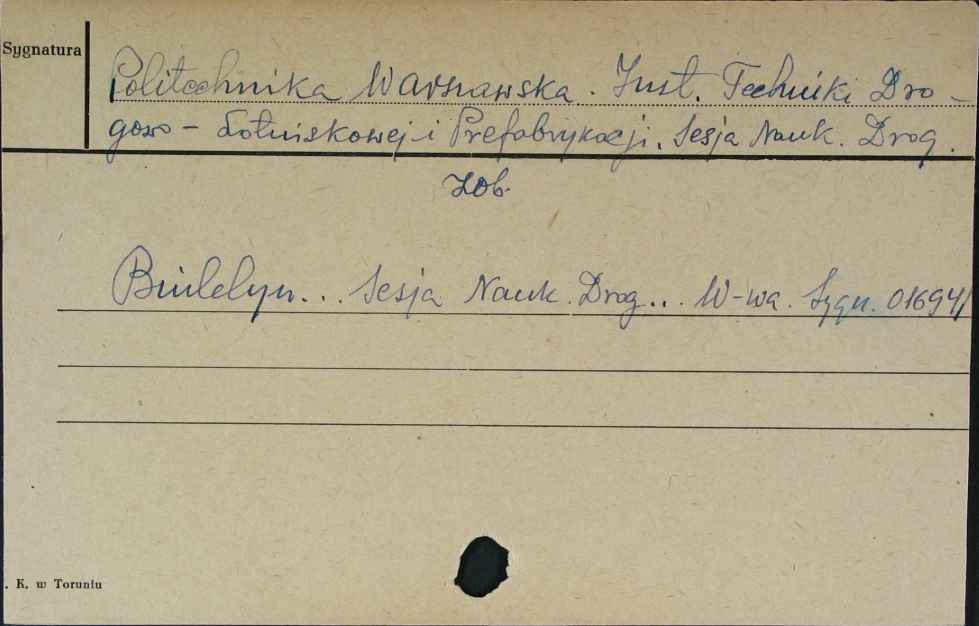 Sygnatura
Politechnika Warszawska. Inst. Techniki Dro-
gowo-Lotniskowej i Prefabrykacji. Sesja Nauk. Drog.
Zob.
Biuletyn... Sesja Nauk. Drog... W-wa. Sygn. 01694/
. K. w Toruniu